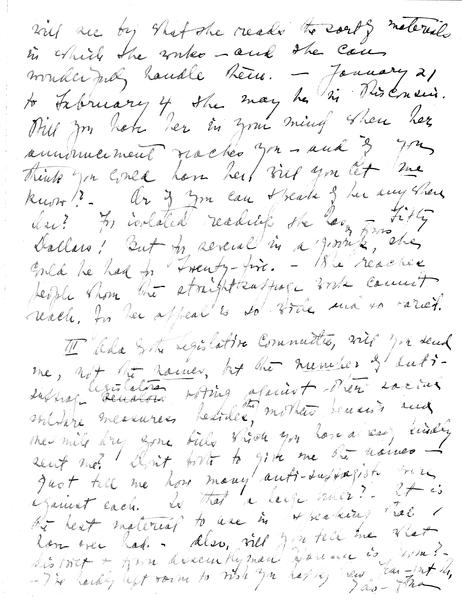 will see by what she reads the sort of materials
in which she works – and she can
wonderfully handle them. – January 21
to February 4 she may be in Wisconsin.
Will you have her in your mind when her
announcement reaches you – and if you
think you could have her, will you let me
know? – Or if you can speak of her anywhere
else? For isolated readings she has Fifty
Dollars! But for several in a group, she
could be had for Twenty-five. – She reaches
people whom the straight suffrage work cannot
reach. For her appeal is so wide and so varied.
III Ada of the legislative Committee, will you send
me, not the names, but the number of anti-
suffrage legislators voting against these social
welfare measures besides the mothers pensions and
the mile dry zone bills which you have already kindly
sent me? Don't bother to give me the names –
Just tell me how many anti-suffragists were
against each. Is that a large order? – It is
the best material to use in speaking that I
have ever had. – Also, will you tell me what
district your assemblyman is from? –
I've hardly left room to wish you happy New Year –